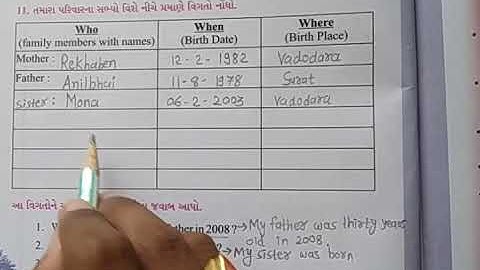 11. તમારા પરિવારના સભ્યો વિશે નીચે પ્રમાણે વિગતો નોંધો.
Who (family members with names) When (Birth Date) Where (Birth Place)
Mother : Rekhaben 12-2-1982 Vadodara
Father : Anilbhai 11-8-1978 Surat
sister : Mona 06-2-2003 Vadodara
આ વિગતોને જવાબ આપો.
1. father in 2008 ? → My father was thirty years
2. old in 2008.
? → My sister was born